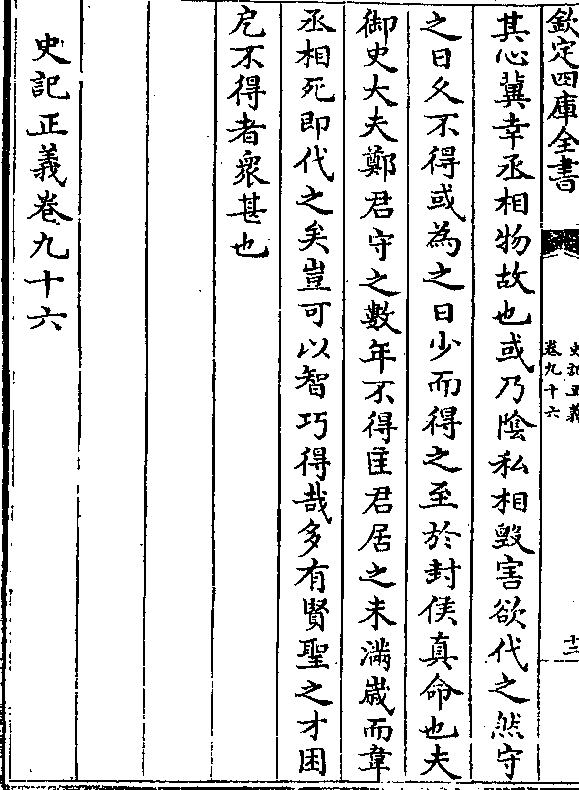 欽定四庫全書
史記正義
卷九十六
十二
其心冀幸丞相物故也或乃陰私相毀害欲代之然守
之日久不得或為之日少而得之至於封侯真命也夫
御史大夫鄭君守之數年不得匡君居之未滿嵗而韋
丞相死即代之矣豈可以智巧得哉多有賢聖之才困
戹不得者衆甚也
史記正義卷九十六